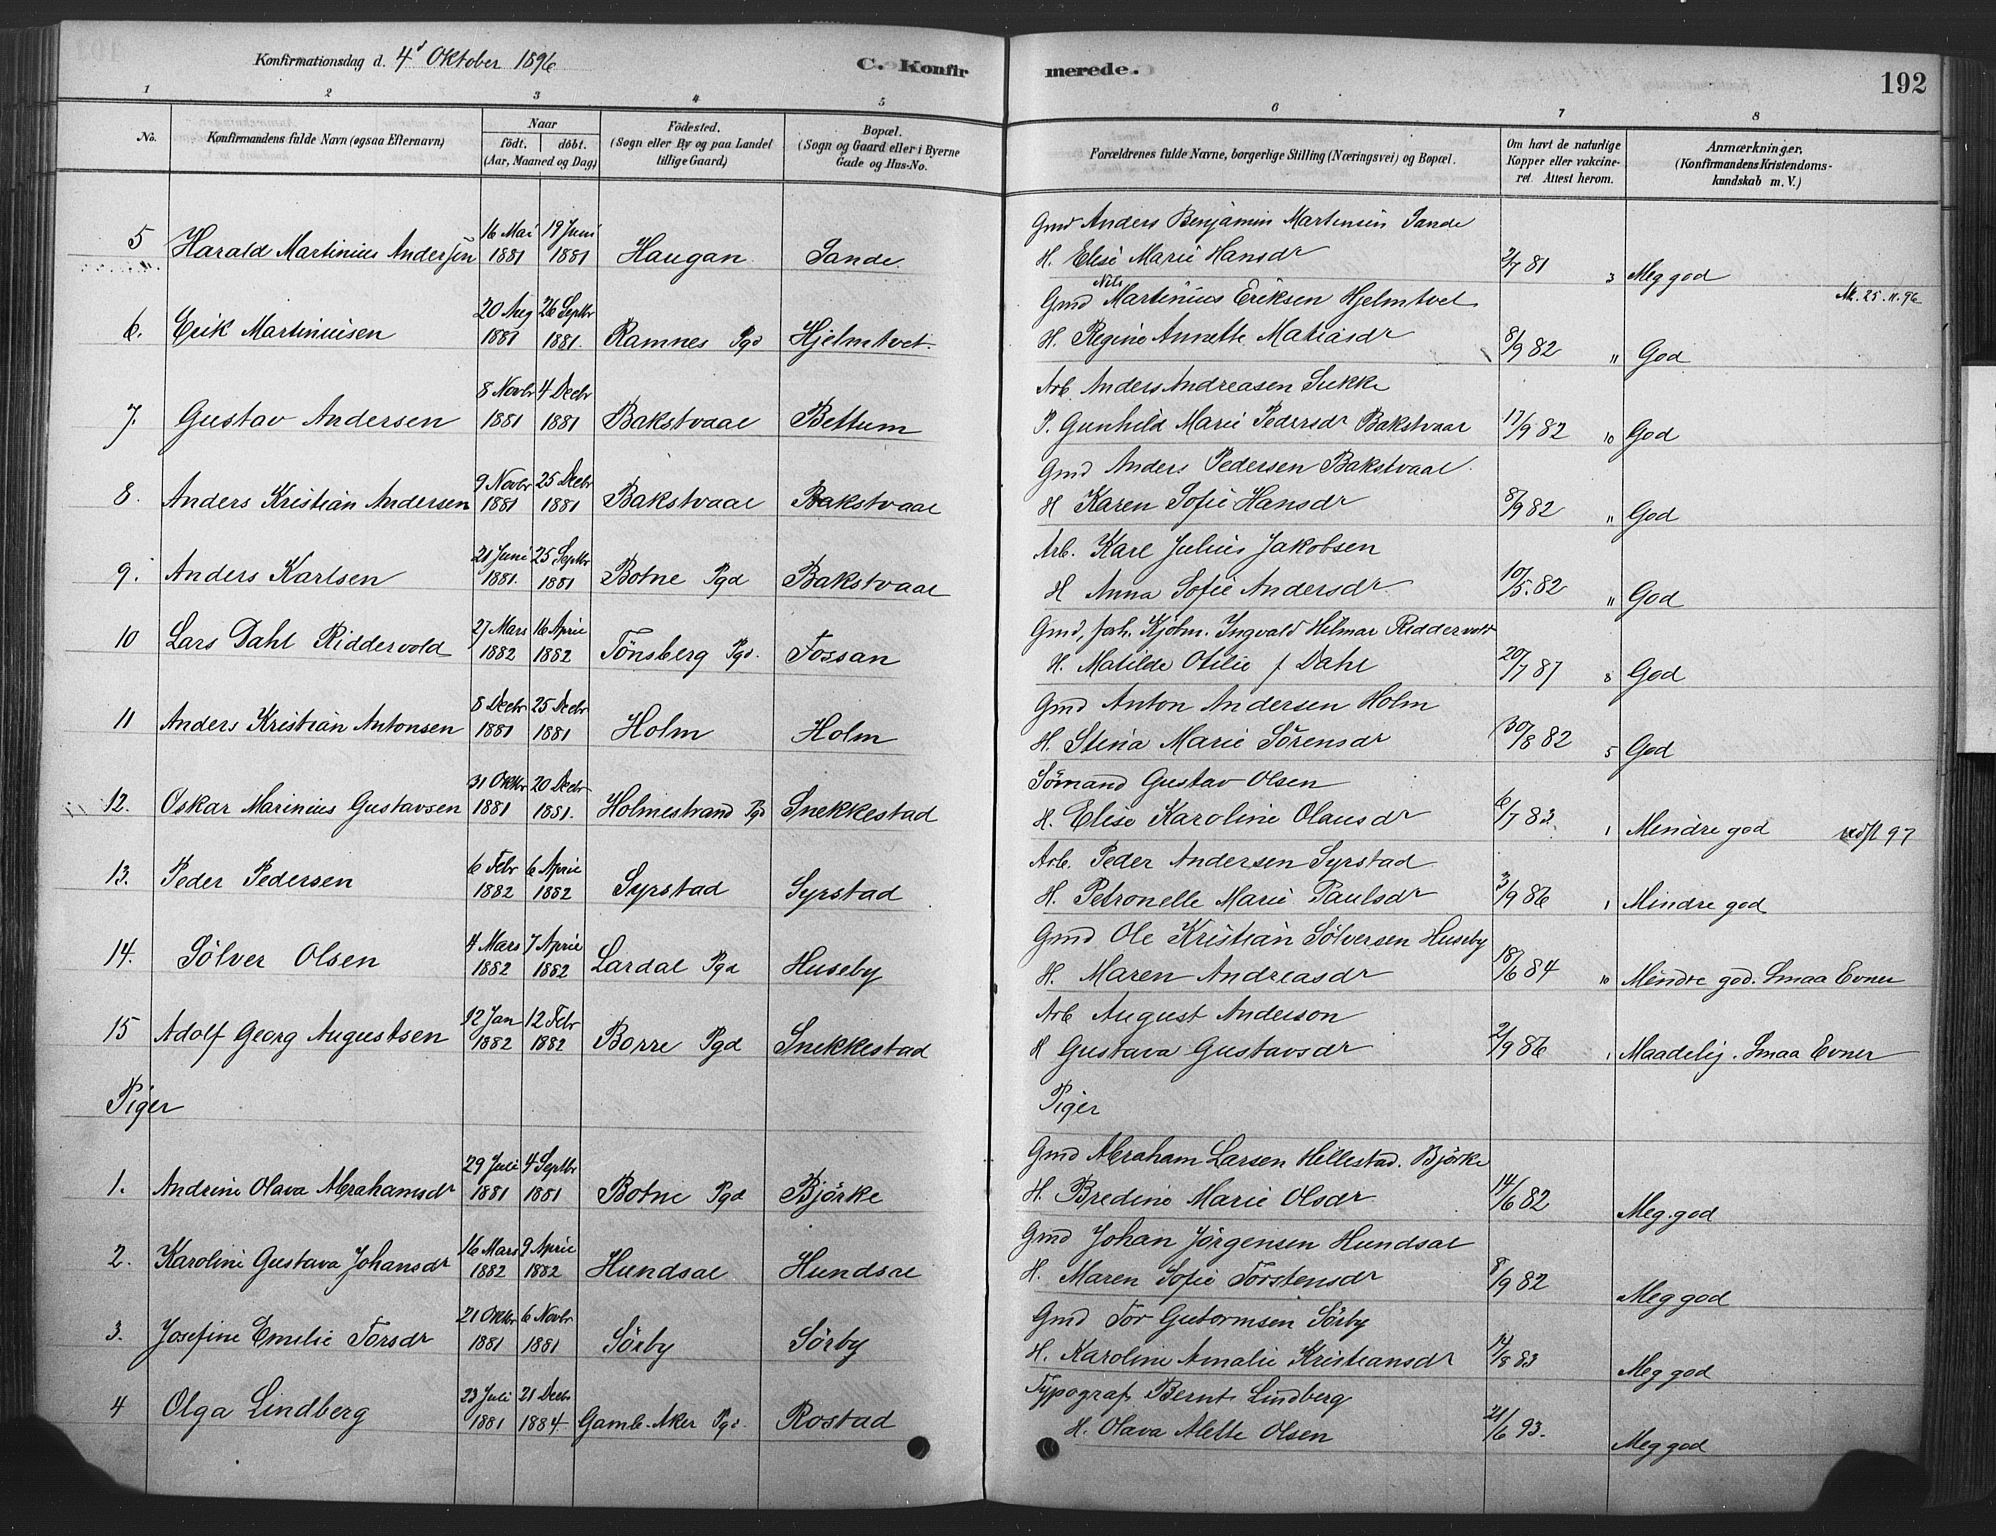 Konfirmationsdag d. 4d Oktober 1896 C. Konfirmerede. 192
1 2 3 4 5 6 7 8
No. Konfirmandens fulde Navn (ogsaa Efternavn) Naar födt. döbt. (Aar, Maaned og Dag) Födested. (Sogn eller By og paa Landet tillige Gaard.) Bopæl. (Sogn og Gaard eller i Byerne Gade og Hus-No. Forældrenes fulde Navne, borgerlige Stilling (Næringsvei) og Bopæl. Om havt de naturlige Kopper eller vakcineret. Attest herom. Anmærkninger. (Konfirmandens Kristendomskundskab m. V.)
5 Harald Martinius Andersen 16 Mai 1881 19 Juni 1881 Haugan Sande Gmd Anders Benjamin Martinsen Sande
H. Elise Marie Hansdr 2/7 81 3 Meg god
6. Erik Martiniusen 20 Aug 1881 26 Septbr 1881. Ramnes Pgd Hjelmtvet. Gmd Nils Martinius Eriksen Hjelmtvet At. 25.11.96
H. Regine Annette Matiasdr 8/9 82 " God
7. Gustav Andersen 8 Novbr 1881 4 Decbr 1881 Bakstvaal Bettum Arb. Anders Andreasen Sukke
P. Gunhild Marie Pedersdr Bakstvaal 17/9 82 10 God
8. Anders Kristian Andersen 9 Novbr 1881 25 Decbr 1881 Bakstvaal Bakstvaal Gmd Anders Pedersen Bakstvaal
H Karen Sofie Hansdr 8/9 82 " God
9. Anders Karlsen 21 Juni 1881. 25 Septbr 1881 Botne Pgd Bakstvaal Arb. Karl Julius Jakobsen
H Anna Sofie Andersdr 10/5. 82 " God
10 Lars Dahl Riddervold 27 Mars 1882 16 April 1882 Tönsberg Pgd. Fossan Gmd, foh. Kjöbm. Ingvald Hilmar Riddervold
H. Matilde Otilie f Dahl 20/7 87 8 God
11 Anders Kristian Antonsen 8 Decbr 1881 25 Decbr 1881 Holm Holm Gmd Anton Andersen Holm
H. Stina Marie Sörensdr 30/8 82 5 God
12. Oskar Marinius Gustavsen 31 Oktbr 1881 20 Decbr 1881. Holmestrand Pgd Snekkestad Sömand Gustav Olsen
H. Elise Karoline Olausdr 6/7 82. 1 Mindre god
13. Peder Pedersen 6 Febr 1882 6 April 1882 Syrstad Syrstad Arb. Peder Andersen Syrstad
H. Petronelle Marie Paulsdr 3/9 86 1 Mindre god
14. Sölver Olsen 4 Mars 1882 7 April 1882 Lardal Pgd Huseby Gmd Ole Kristian Sölversen Huseby
H. Maren Andreasdr 18/6 84 10 Mindre god. Smaa Evner
15 Adolf Georg Augustsen 12 Jan 1882 12 Febr 1882 Borre Pgd Snekkestad Arb August Anderson
H Gustava Gustavsdr 21/9 86 1 Maadelig. Smaa Evner
Piger Piger
1. Andrine Olava Abrahamsdr 29 Juli 1881 4 Septbr 1881 Botne Pgd Björke Gmd Abraham Larsen Hillestad. Björke
H. Bredine Marie Olsdr 14/6 82 Meg. god
2. Karoline Gustava Johansdr 16 Mars 1882 9 April 1882 Hundsal Hundsal Gmd Johan Jörgensen Hundsal
H. Maren Sofie Torstensdr 8/9 82 Meg god
3. Josefine Emilie Torsdr 21 Oktbr 1881 6 Novbr 1881 Sörby Sörby Gmd Tor Gutormsen Sörby
H. Karoline Amalie Kristiansdr 14/8 83 Meg god
4 Olga Lindberg 23 Juli 1881 21 Decbr 1884. Gamle Aker Pgd. Rostad Typograf Bernt Lindberg
H. Olava Alette Olsen 21/6 93. Meg god